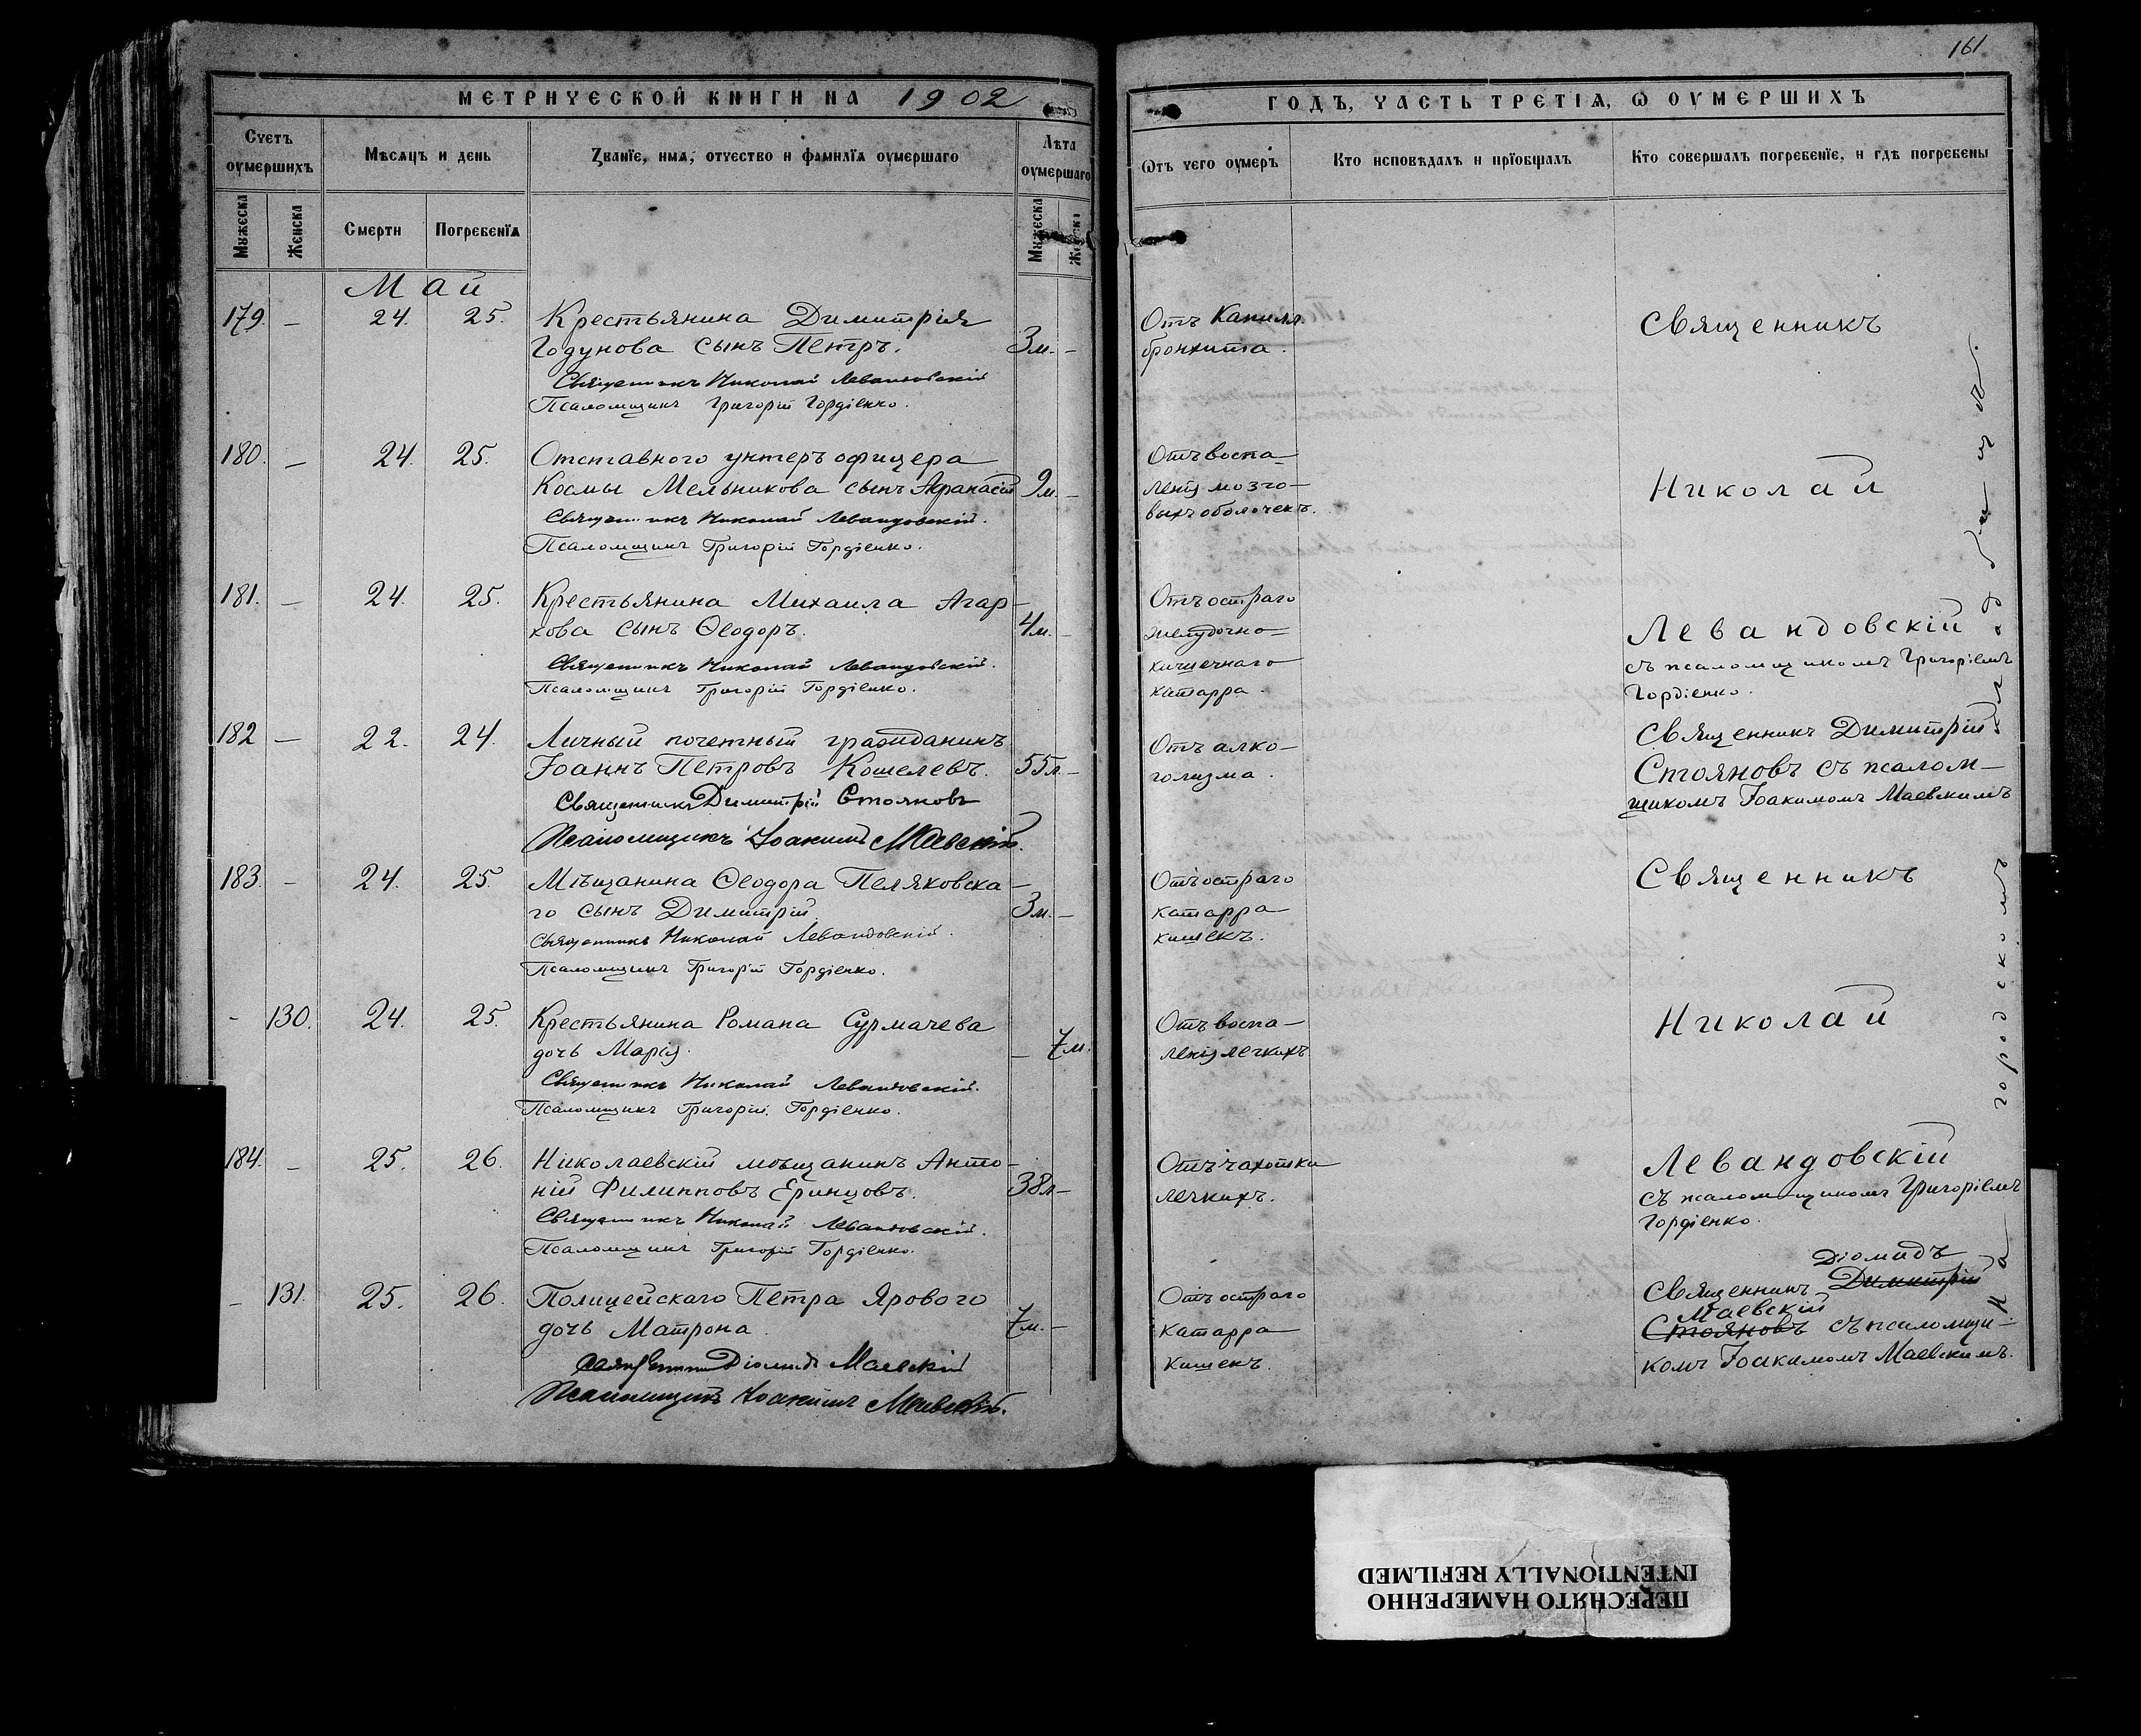 161
МЕТРИЧЕСКОЙ КНИГИ НА 1902
ГОДЪ, ЧАСТЬ ТРЕТІѦ, Ѡ ОУМЕРШИХЪ
Счетъ оумершихъ
Мѣсяцъ и день
Званїе, имя, отчество и фамилїя оумершаго
Лѣта оумершаго
Ѿтъ чего оумеръ
Кто исповѣдалъ и прїобщалъ
Кто совершалъ погребенїе, и гдѣ погребены
Мужеска
Женска
Смерти
Погребенїя
Мужеска
Женска
Май
179. – 24. 25. Крестьянина Димитрія
Годунова сынъ Петръ. 3м. –
Священникъ Николай Левандовскій
Псаломщикъ Григорій Гордіенко.
Отъ Капилл.
бронхита.
Священникъ
180. – 24. 25. Отставного унтеръ офицера
Космы Мельникова сынъ Афанасій 9м. –
Священникъ Николай Левандовскій.
Псаломщикъ Григорій Гордіенко.
Отъ воспа–
ленія мозго–
выхъ оболочекъ.
Николай
181. – 24. 25. Крестьянина Михаила Агар–
кова сынъ Ѳеодоръ. 4м. –
Священникъ Николай Левандовскій.
Псаломщикъ Григорій Гордіенко.
Отъ остраго
желудочно–
кишечнаго
катарра.
Левандовскій
съ псаломщикомъ Григоріемъ
Гордіенко.
182 – 22. 24. Личный почетный гражданинъ
Іоаннъ Петровъ Кошелевъ. 55л –
Священникъ Димитрій Стояновъ
Псаломщикъ Іоакимъ Маевскій.
Отъ алко–
голизма.
Священникъ Димитрій
Стояновъ съ псалом–
щикомъ Іоакимомъ Маевскимъ
183. – 24. 25. Мѣщанина Ѳеодора Пеляковска–
го сынъ Димитрій. 3м. –
Священникъ Николай Левандовскій.
Псаломщикъ Григорій Гордіенко.
Отъ остраго
катарра
кишекъ.
Священникъ
– 130. 24. 25. Крестьянина Романа Сурмачева
дочь Марія. – 7м.
Священникъ Николай Левандовскій.
Псаломщикъ Григорій Гордіенко.
Отъ воспа–
ленія легкихъ
Николай
184. – 25. 26. Николаевскій мѣщанинъ Анто–
ній Филипповъ Еринцовъ. 38л –
Священникъ Николай Левандовскій.
Псаломщикъ Григорій Гордіенко.
Отъ чахотки
легкихъ.
Левандовскій
съ псаломщикомъ Григоріемъ
Гордіенко.
– 131. 25. 26. Полицейскаго Петра Ярового
дочь Матрона. 7м. –
Священникъ Діомидъ Маевскій
Псаломщикъ Іоакимъ Маевскій.
Отъ остраго
катарра
кишекъ.
Діомидъ
Священникъ Димитрій
Маевскій
Стояновъ съ псаломщи–
комъ Іоакимомъ Маевскимъ.
На городскомъ кладбищѣ.
ПЕРЕСНЯТО НАМЕРЕННО
INTENTIONALLY REFILMED